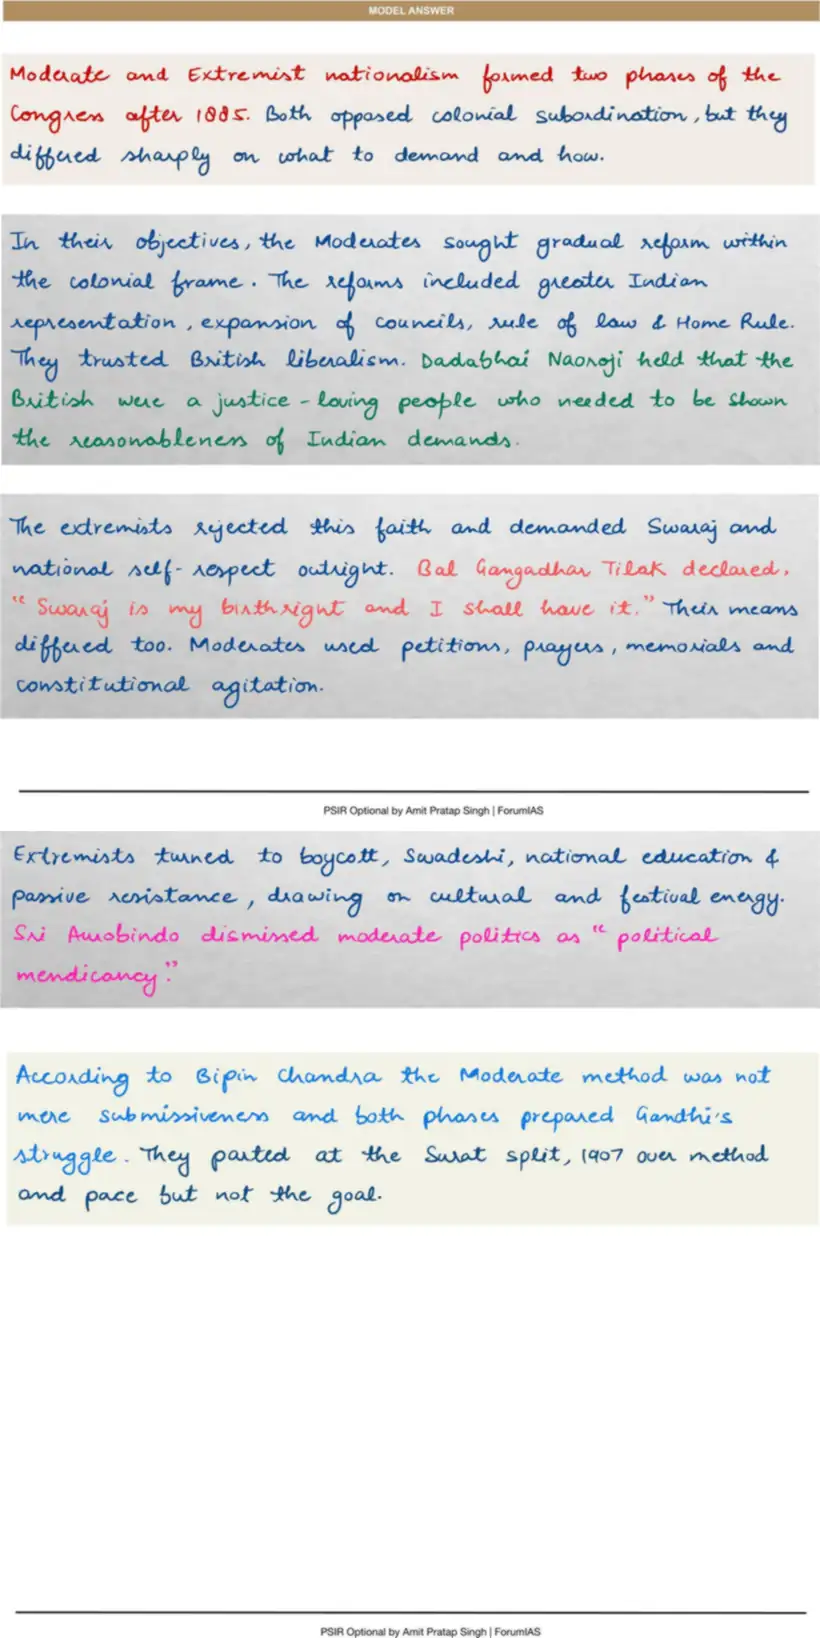 MODEL ANSWER
Moderate and Extremist nationalism formed two phases of the
Congress after 1885. Both opposed colonial subordination, but they
differed sharply on what to demand and how.
In their objectives, the Moderates sought gradual reform within
the colonial frame. The reforms included greater Indian
representation, expansion of councils, rule of law & Home Rule.
They trusted British liberalism. Dadabhai Naoroji held that the
British were a justice-loving people who needed to be shown
the reasonableness of Indian demands.
The extremists rejected this faith and demanded Swaraj and
national self-respect outright. Bal Gangadhar Tilak declared,
"Swaraj is my birthright and I shall have it." Their means
differed too. Moderates used petitions, prayers, memorials and
constitutional agitation.
PSIR Optional by Amit Pratap Singh | ForumIAS
Extremists turned to boycott, Swadeshi, national education &
passive resistance, drawing on cultural and festival energy.
Sri Aurobindo dismissed moderate politics as "political
mendicancy."
According to Bipin Chandra the Moderate method was not
mere submissiveness and both phases prepared Gandhi's
struggle. They parted at the Surat split, 1907 over method
and pace but not the goal.
PSIR Optional by Amit Pratap Singh | ForumIAS